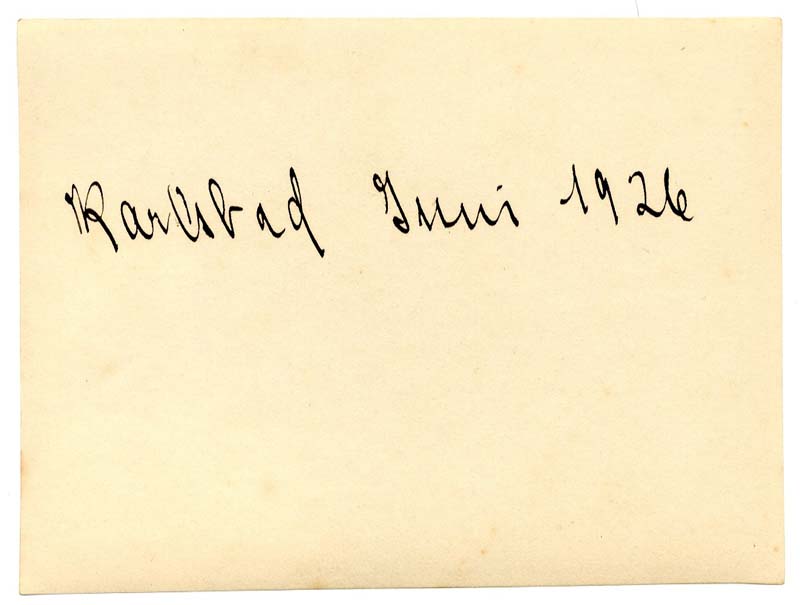 Karlsbad Juni 1926